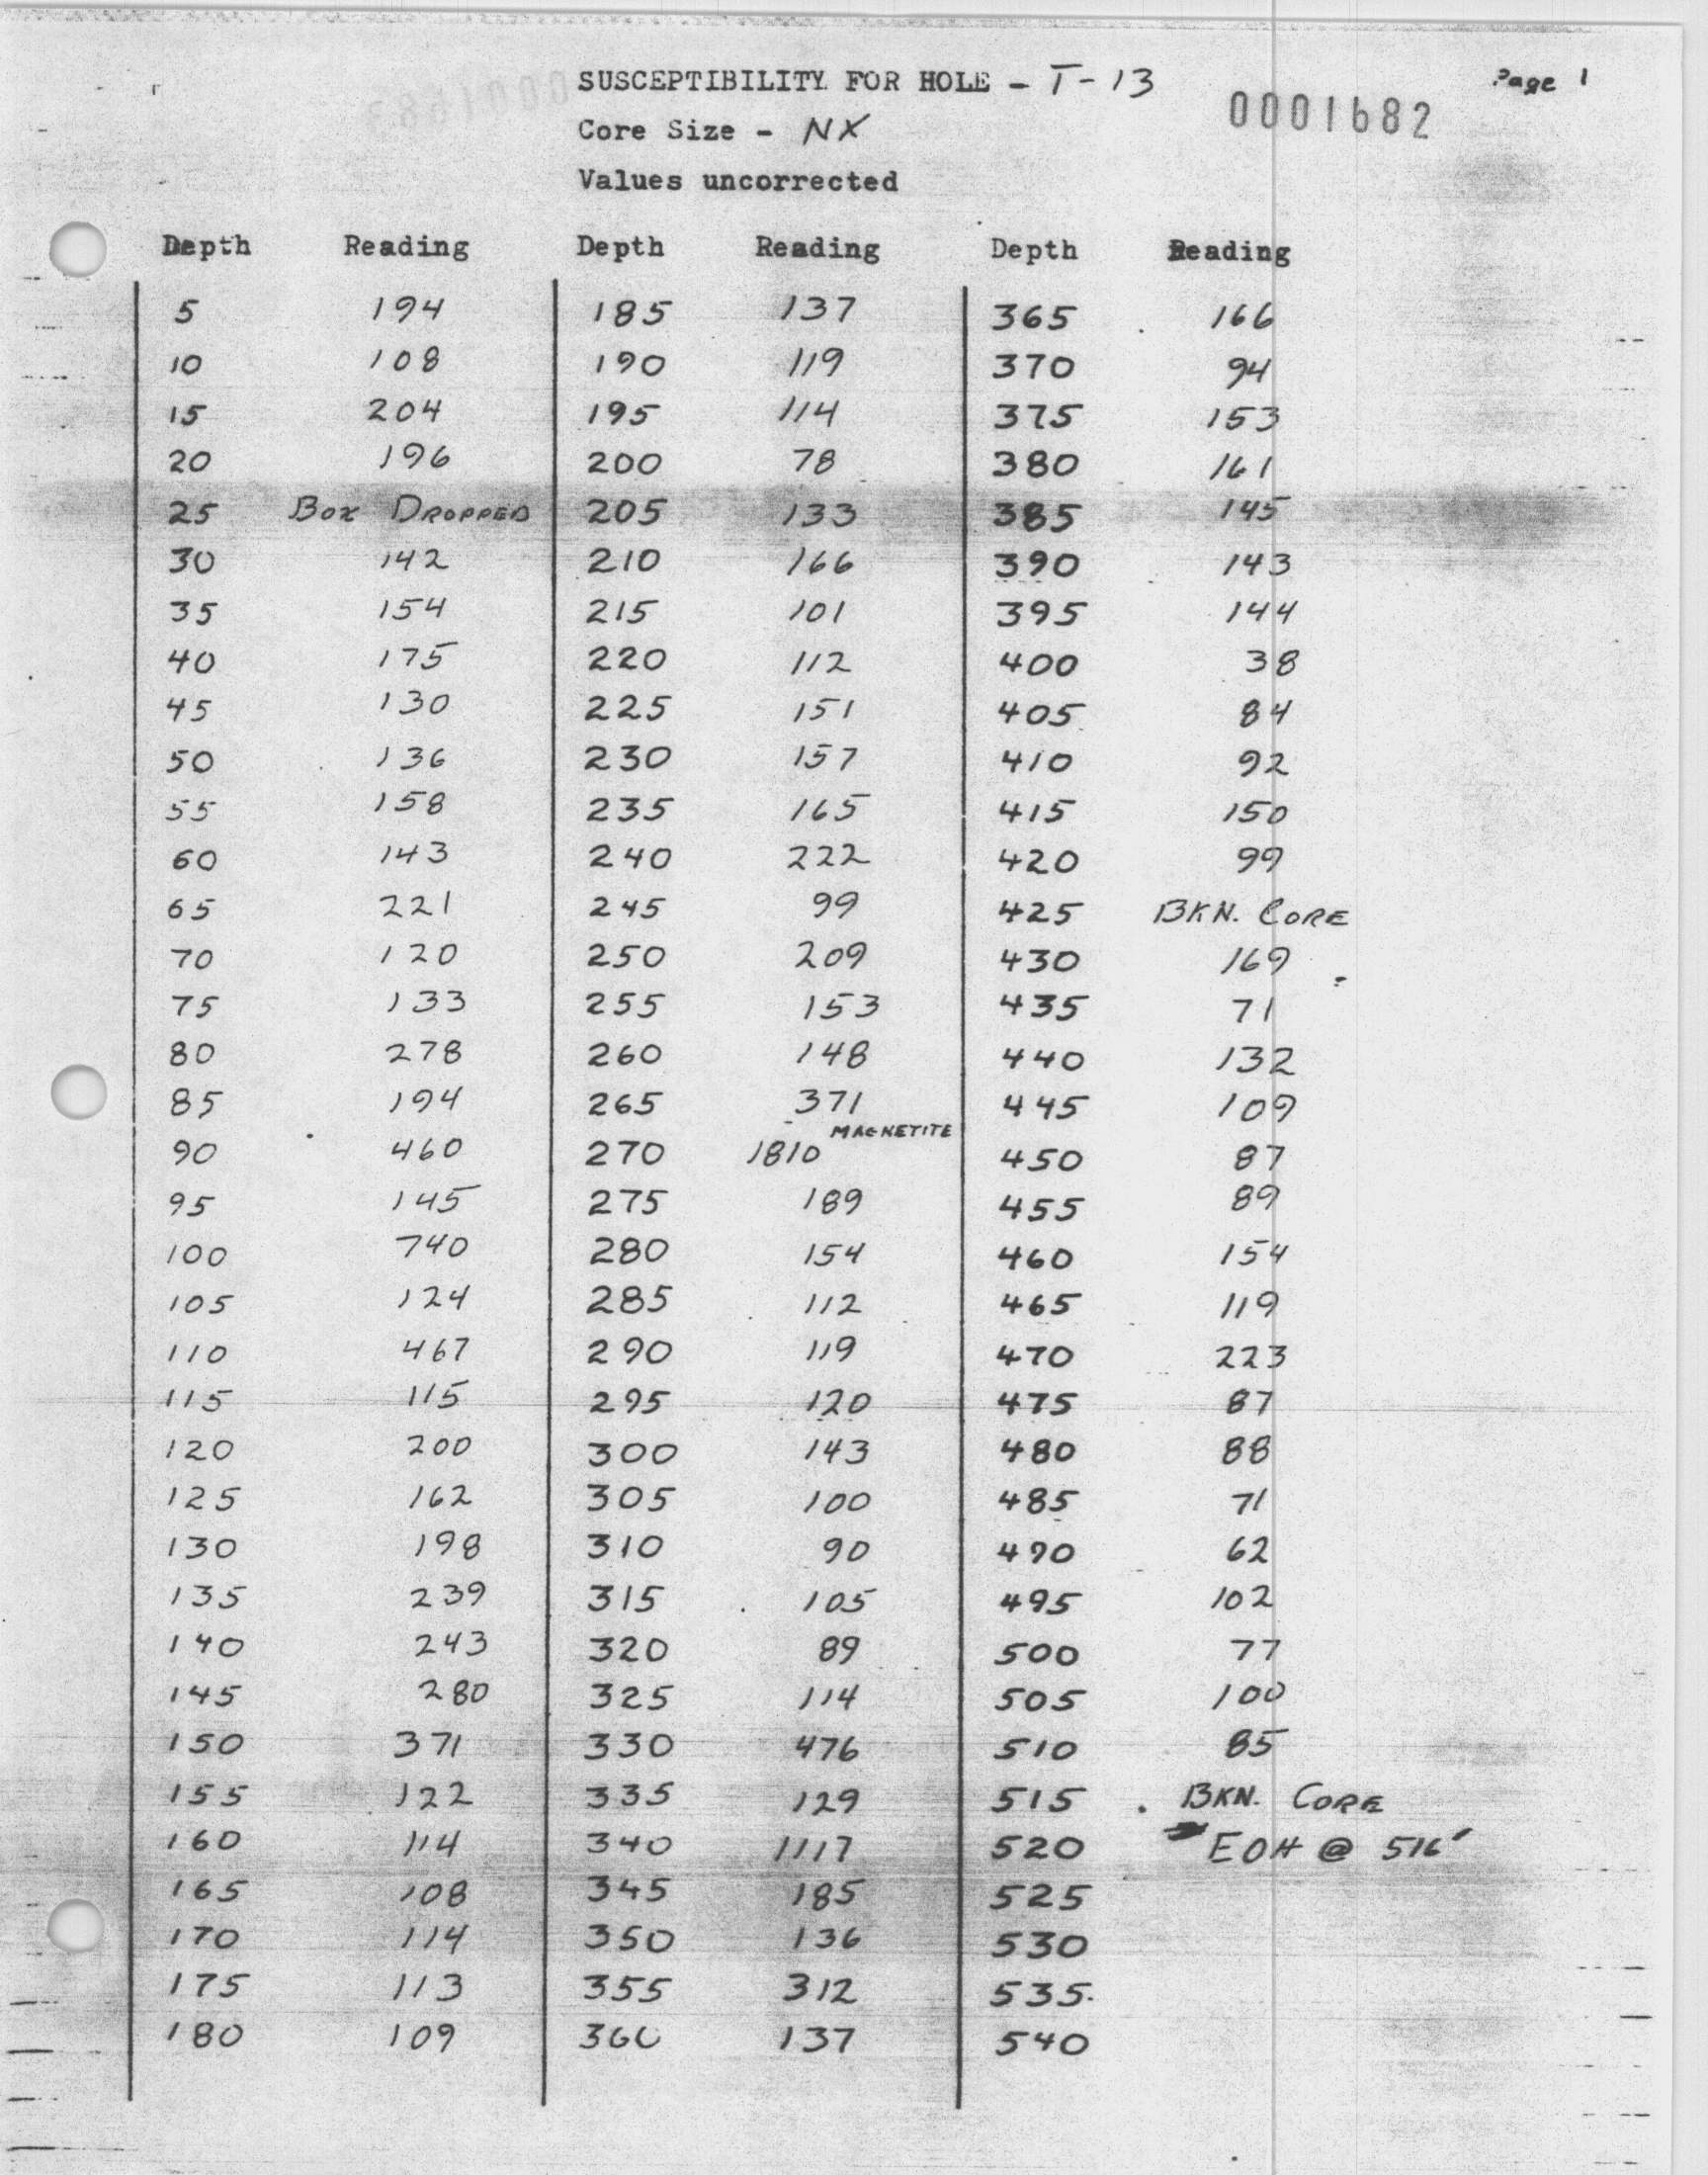 SUSCEPTIBILITY FOR HOLE - T-13 Page 1
0001682
Core Size - NX
Values uncorrected
Depth Reading Depth Reading Depth Reading
5 194 185 137 365 166
10 108 190 119 370 94
15 204 195 114 375 153
20 196 200 78 380 161
25 BOX DROPPED 205 133 385 145
30 142 210 166 390 143
35 154 215 101 395 144
40 175 220 112 400 38
45 130 225 151 405 84
50 136 230 157 410 92
55 158 235 165 415 150
60 143 240 222 420 99
65 221 245 99 425 BKN. CORE
70 120 250 209 430 169
75 133 255 153 435 71
80 278 260 148 440 132
85 194 265 371 445 109
90 460 270 1810 MAGNETITE 450 87
95 145 275 189 455 89
100 740 280 154 460 154
105 124 285 112 465 119
110 467 290 119 470 223
115 115 295 120 475 87
120 200 300 143 480 88
125 162 305 100 485 71
130 198 310 90 490 62
135 239 315 105 495 102
140 243 320 89 500 77
145 280 325 114 505 100
150 371 330 476 510 85
155 122 335 129 515 BKN. CORE
160 114 340 1117 520 EOH @ 516'
165 108 345 185 525
170 114 350 136 530
175 113 355 312 535
180 109 360 137 540